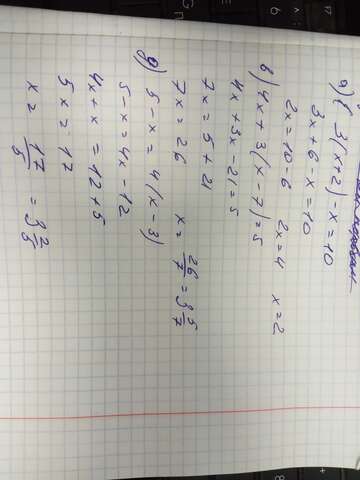 а) 3(x+2) - x = 10
3x + 6 - x = 10
2x = 10 - 6 2x = 4 x = 2
в) 4x + 3(x - 7) = 5
4x + 3x - 21 = 5
7x = 5 + 21
7x = 26 x = 26/7 = 3 5/7
д) 5 - x = 4(x - 3)
5 - x = 4x - 12
4x + x = 12 + 5
5x = 17
x = 17/5 = 3 2/5